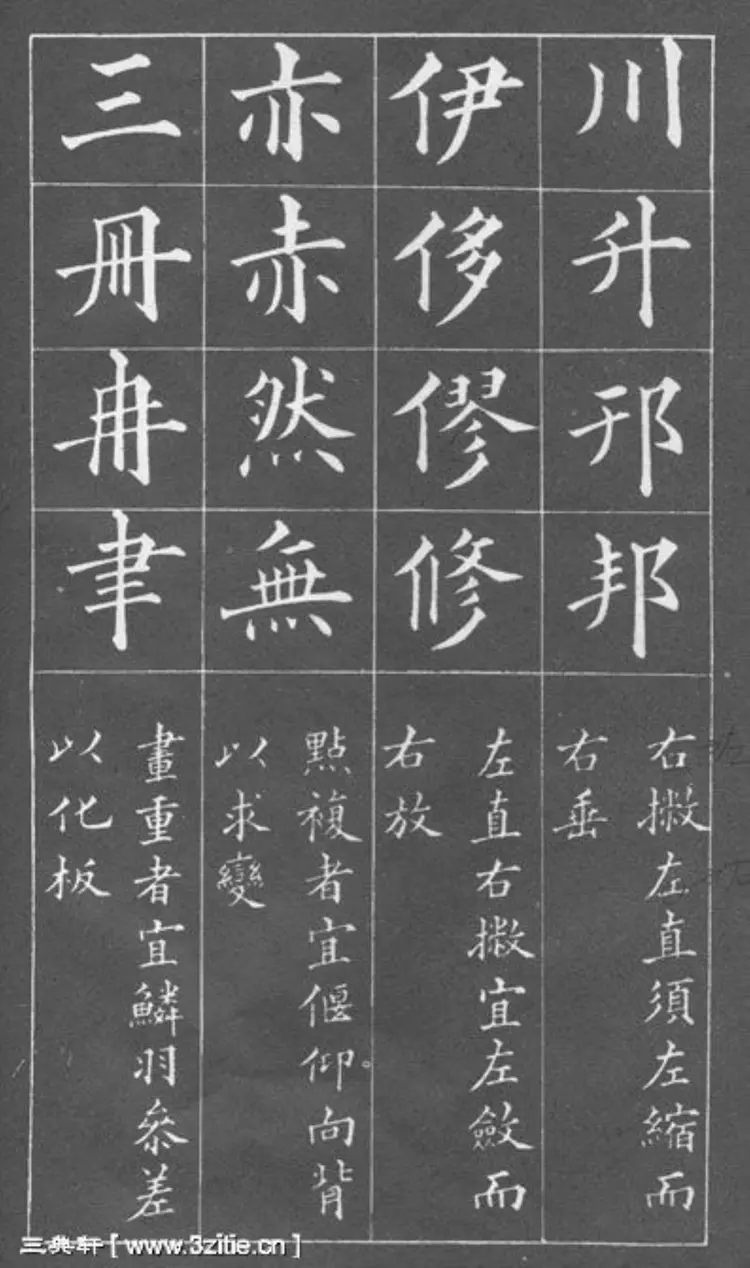 川升邗邦
右撇左直須左縮而
右垂
伊侈僇修
左直右撇宜左斂而
右放
亦赤然無
點複者宜偃仰向背
以求變
三冊冉聿
畫重者宜鱗羽參差
以化板
三典轩[www.3zitie.cn]